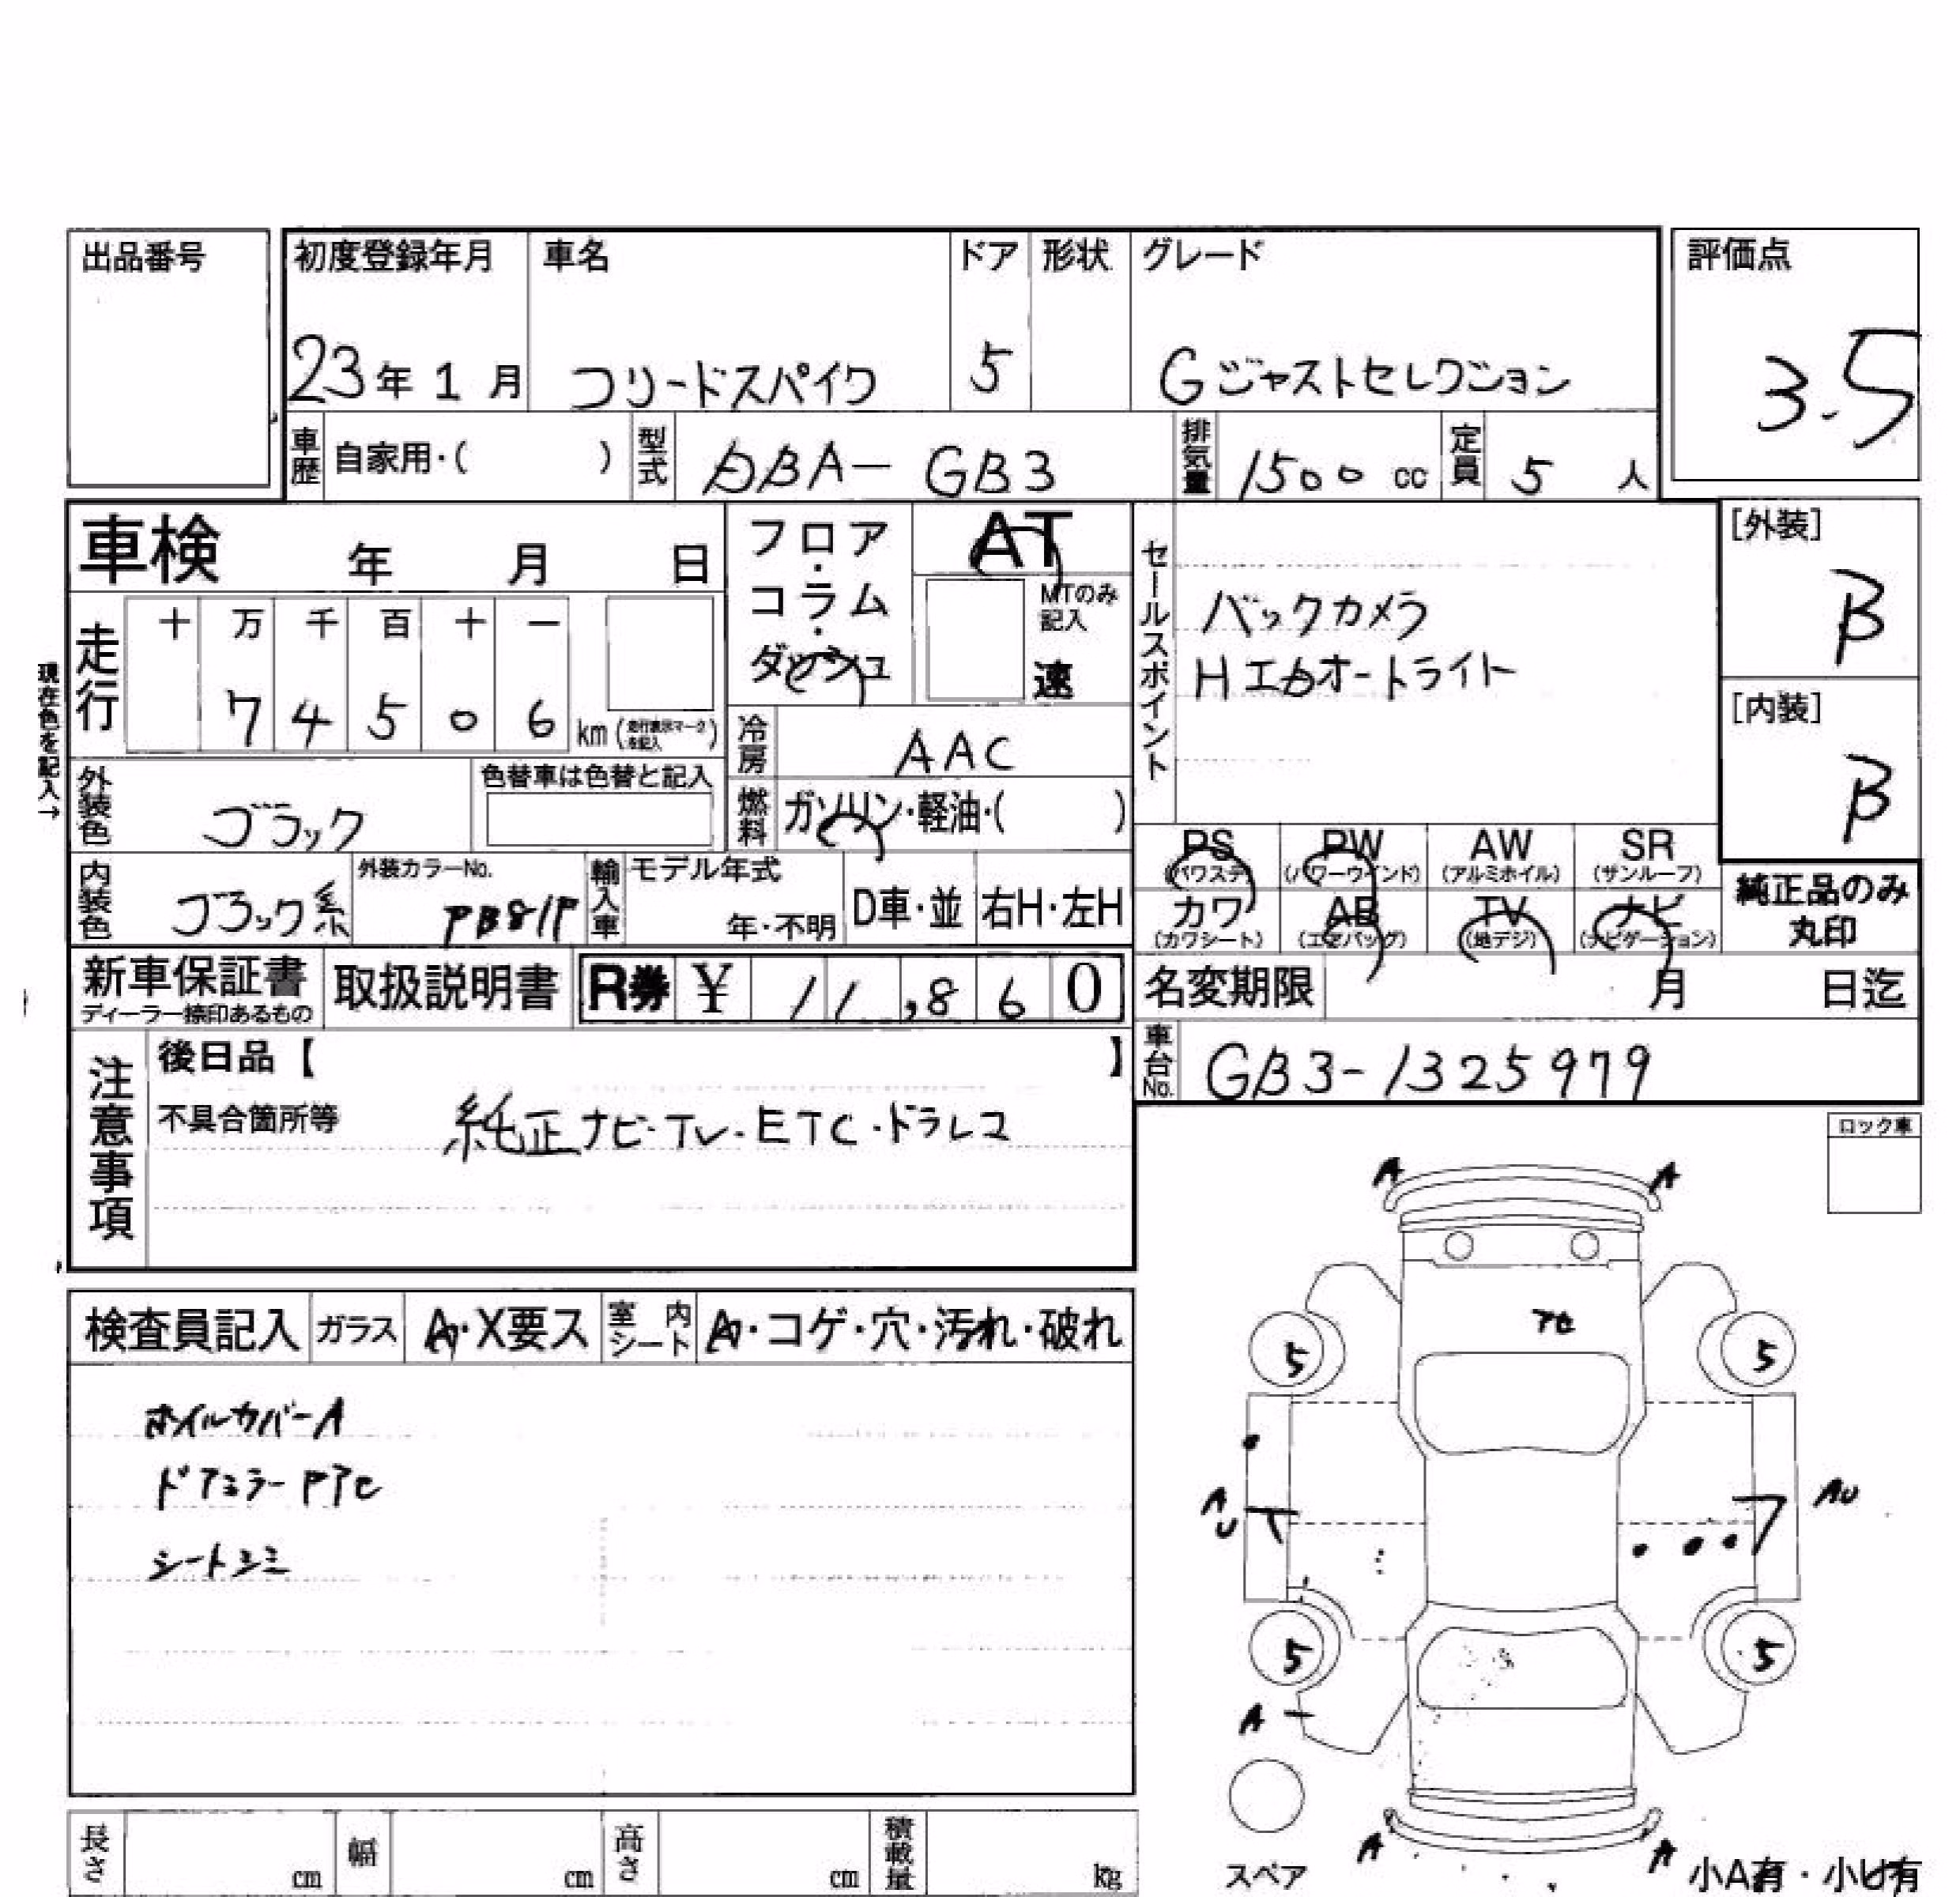 出品番号
初度登録年月 車名 ドア 形状 グレード
評価点
23年1月 フリードスパイク 5 Gジャストセレクション
3.5
車歴 自家用・( ) 型式 DBA-GB3 排気量 1500 cc 定員 5 人
車検 年 月 日
フロア・コラム・ダッシュ
AT
MTのみ記入
速
セールスポイント
バックカメラ
HIDオートライト
[外装]
B
[内装]
B
現在色を記入→
走行 十 万 千 百 十 一
7 4 5 0 6 km (走行表示マークを記入)
冷房 AAC
燃料 ガソリン・軽油・( )
外装色 ブラック 色替車は色替と記入
内装色 ブラック系 外装カラーNo. PB81P 輸入車 モデル年式 年・不明 D車・並 右H・左H
PS (パワステ) PW (パワーウインド) AW (アルミホイル) SR (サンルーフ)
カワ (カワシート) AB (エアバッグ) TV (地デジ) ナビ (ナビゲーション)
純正品のみ丸印
新車保証書 ディーラー捺印あるもの 取扱説明書 R券 ¥ 11,860
名変期限 月 日迄
車台No. GB3-1325979
注意事項
後日品【 】
不具合箇所等 純正ナビ・TV・ETC・ドラレコ
ロック車
検査員記入 ガラス A・X要ス 室内シート A・コゲ・穴・汚れ・破れ
ホイルカバーA
ドアミラーPアセ
シートシミ
A A
アセ
5 5
AU AU
5 5
A
A A
スペア
小A有・小U有
長さ cm 幅 cm 高さ cm 積載量 kg